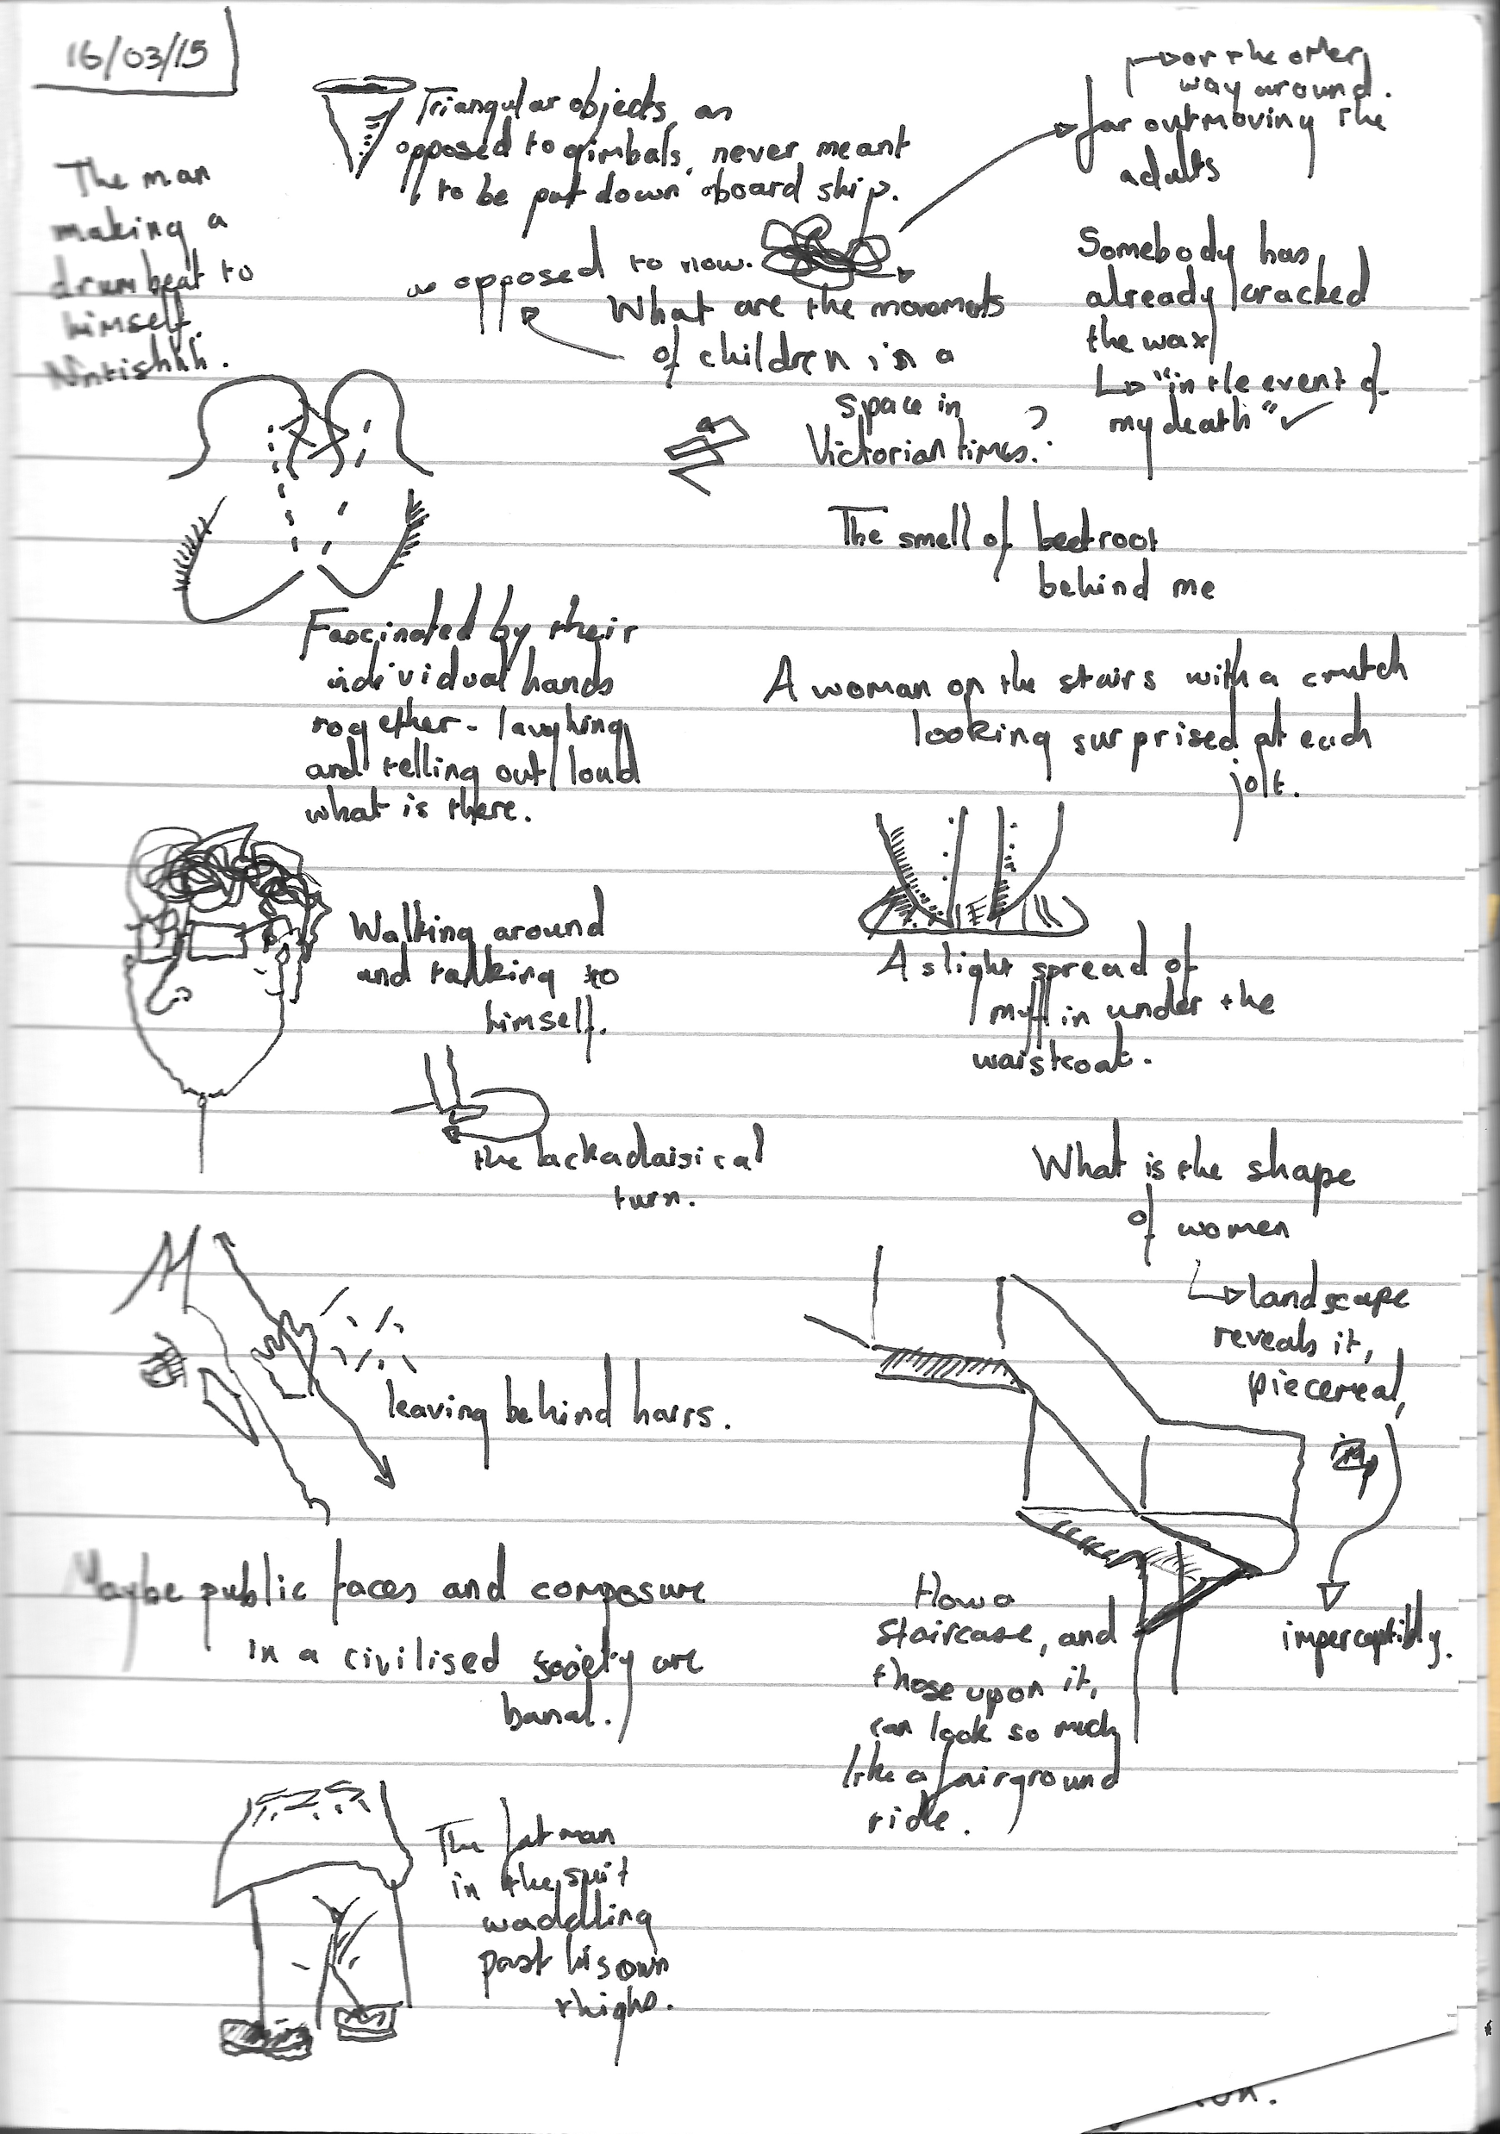 16/03/15
The man
making a
drum beat to
himself.
Triangular objects, as
opposed to gimbals, never meant
to be put down aboard ship.
or the other
way around.
far outmoving the
adults
as opposed to now.
What are the movements
of children in a
space in
Victorian times?
Somebody has
already cracked
the wax
"in the event of
my death" ✓
The smell of beetroot
behind me
Fascinated by their
individual hands
together - laughing
and telling out loud
what is there.
A woman on the stairs with a crutch
looking surprised at each
jolt.
Walking around
and talking to
himself.
A slight spread of
muffin under the
waistcoat.
the lackadaisical
turn.
What is the shape
of women
landscape
reveals it,
piecemeal,
imperceptibly.
leaving behind hairs.
Maybe public faces and composure
in a civilised society are
banal.
How a
staircase, and
those upon it,
can look so much
like a fairground
ride.
The fat man
in the suit
waddling
past his own
thighs.